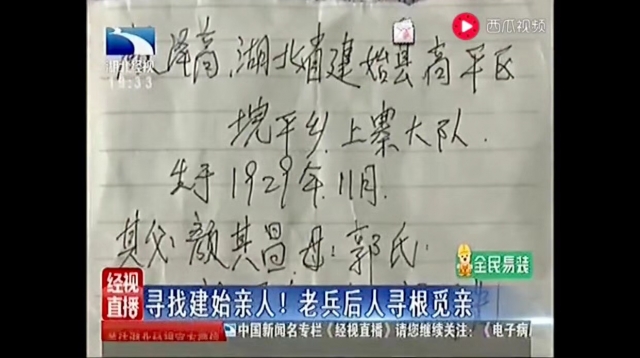 西瓜视频
湖北经视
19:33
泽高,湖北省建始县高平区
塊平乡,上寨大队.
生于1929年11月.
其父:颜其昌 母:郭氏.
全民易装
经视
直播
寻找建始亲人!老兵后人寻根觅亲
中国新闻名专栏《经视直播》请您继续关注:《电子病